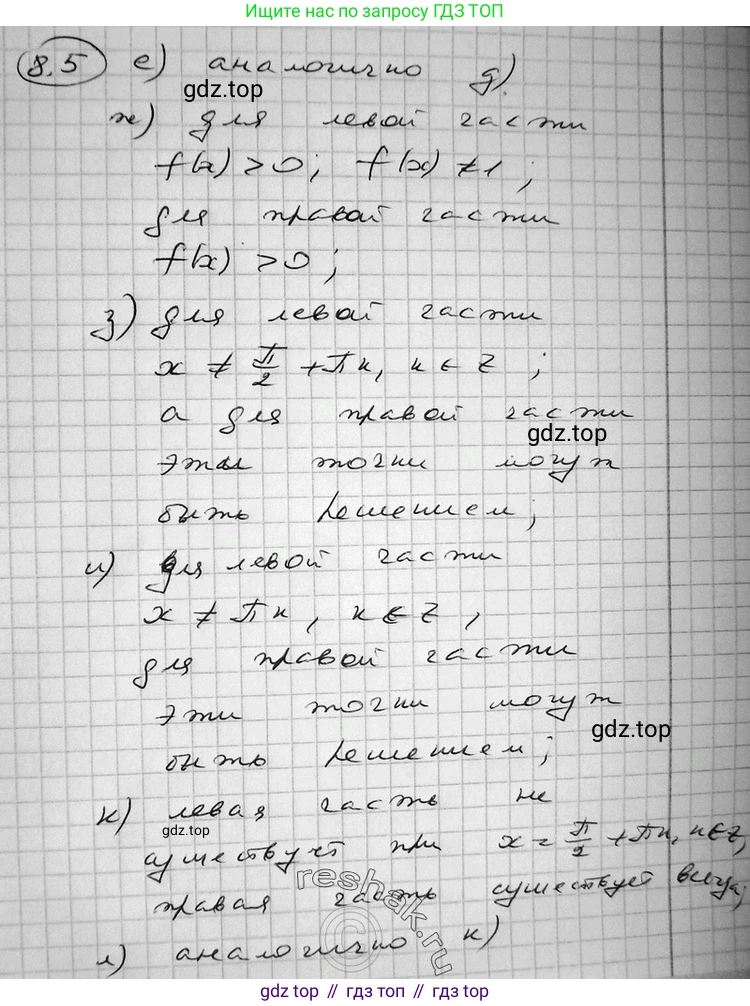 Ищите нас по запросу ГДЗ ТОП
8.5 е) аналогично д)
gdz.top
ж) для левой части
f(x) > 0; f(x) ≠ 1;
для правой части
f(x) > 0;
з) для левой части
x ≠ π/2 + πn, n ∈ Z;
а для правой части
gdz.top
эти точки могут
быть решением;
и) для левой части
x ≠ πn, n ∈ Z,
для правой части
эти точки могут
gdz.top
быть решением;
к) левая часть не
gdz.top
существует при x = π/2 + πn, n ∈ Z,
правая часть существует всегда;
reshak.ru
л) аналогично к)
gdz.top // gdz.top // gdz.top